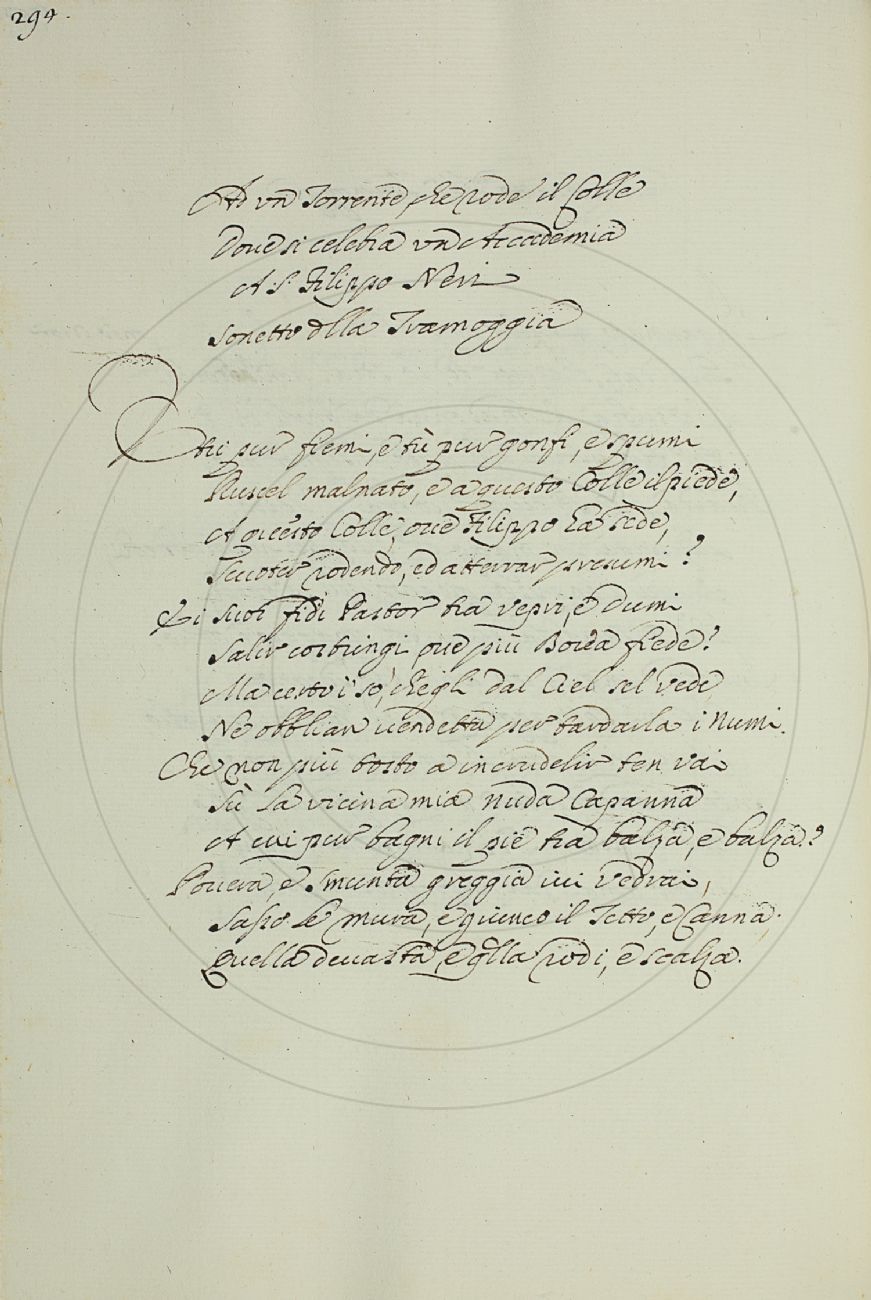 294.
Ad vn Torrente, che rode il Colle
Doue si celebra vn Accademia
A S. Filippo Neri
Sonetto dlla Tramoggia
E tu pur fremi, e tù pur gonfi, e spumi
Ruscel malnato, e a questo Colle il piede,
A questo Colle, oue Filippo ha sede,
Scuoter rodendo, ed atterrar presumi?
E i suoi fidi Pastor tra vepri, e Dumi
Salir costringi, oue più Borea fiede?
Ma certo i' so, ch'egli dal Ciel sel vede
Ne obblian uendetta per tardarla i Numi.
Che non più tosto a incrudelir ten vai
Sù la vicina mia nuda Capanna
A cui pur bagni il piè tra balza, e balza?
Pouera, e smunta greggia iui vedrai,
Sasso le mura, e giunco il Tetto, e Canna.
Quella deuasta, e qlla rodi, e scalza.